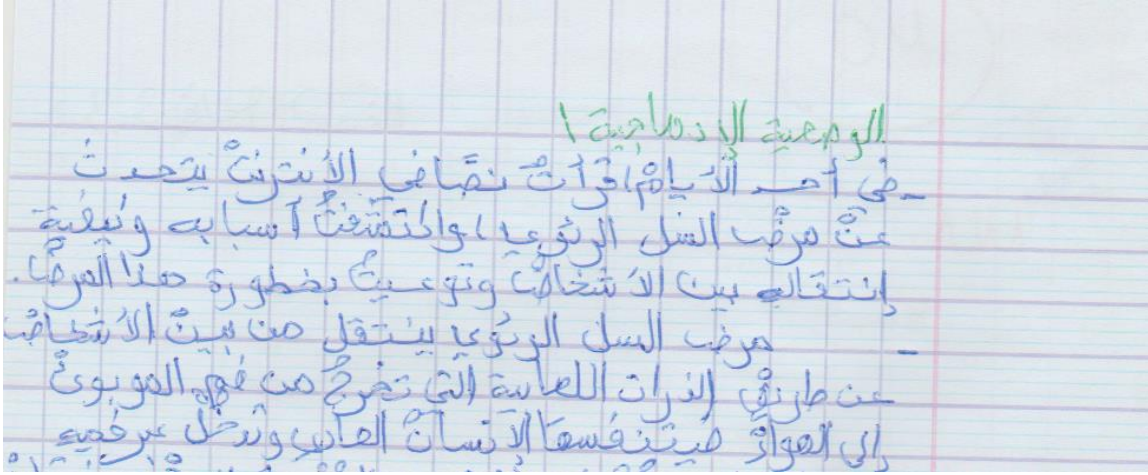 الوضعية الإدماجية 1
- في أحد الأيام، قرأتُ نصًّا في الأنترنتْ يتحدثُ
عنْ مرضْ السل الرئوي، واكتشفتُ أسبابه وكيفية
إنتقاله بين الأشخاصْ وتوعيتُ بخطورة هذا المرضْ.
- مرضْ السل الرئوي ينتقل من بينْ الأشخاصْ
عن طريقْ الذرات اللعابية التي تخرجُ من فمِ الموبوئْ
إلى الهواءْ فيتنفسها الإنسانْ العادي وتدخلْ عبر فمه